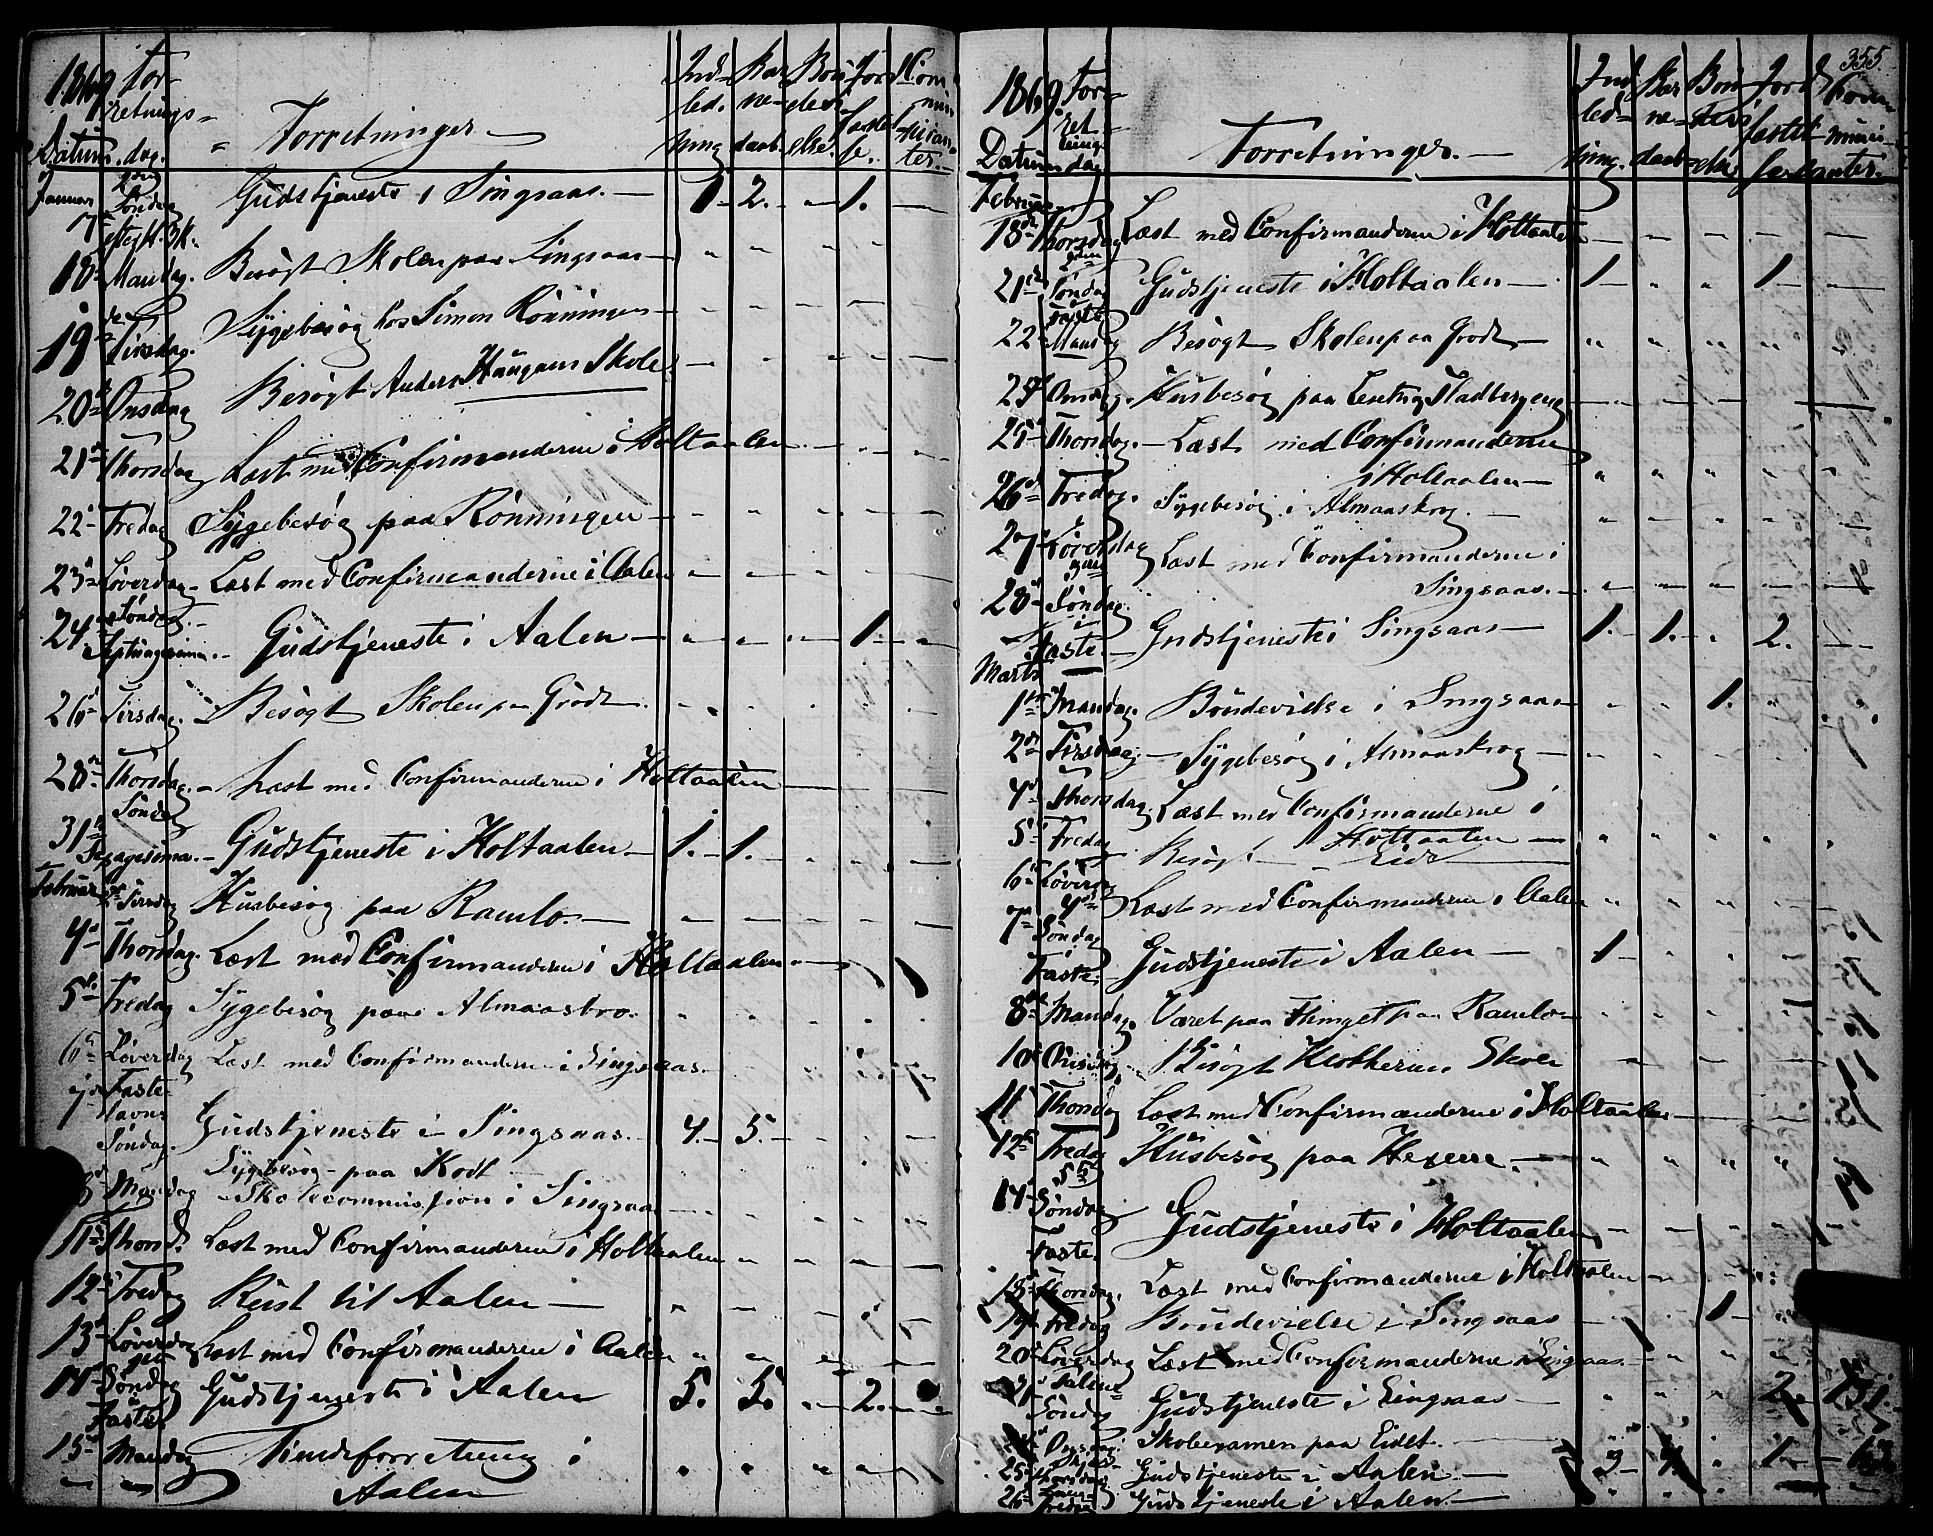 1869 For-
retnings-
Datum. dag.
Forretninger
Ind-
led-
ning
Bar
ne-
daab.
fastel
se.
Com
ter.
Januar
17 Søndag Gudstjeneste i Singsaas. 1. 2. - 1. -
18 Mandag. Besøgt Skolen paa Singsaas
19 Tirsdag. Sygebesøg hos Simon Rönningen
20 Onsdag Besøgt Anders Haugens Skole
21 Thorsdag Læst med Confirmanderne i Holtaalen
22 Fredag Sygebesøg paa Rönningen
23 Løverdag Læst med Confirmanderne i Aalen
24 Søndag Septuagesima. Gudstjeneste i Aalen 1.
26 Tirsdag. Besøgt Skolen paa Grodt
28 Thorsdag. Læst med Confirmanderne i Holtaalen
31 Søndag Sexagesima. Gudstjeneste i Holtaalen 1. 1.
Februar 2 Tirsdag Husbesøg paa Ramlo.
4 Thorsdag. Læst med Confirmanderne i Holtaalen
5 Fredag Sygebesøg paa Almaasbro.
6 Løverdag Læst med Confirmanderne i Singsaas.
7 Faste-
lavns
Søndag. Gudstjeneste i Singsaas. 4. 5.
Sygebesøg paa
8 Mandag Skolecommission i Singsaas
11 Thorsd. Læst med Confirmanderne i Holtaalen
12 Fredag Reist til Aalen
13 Løverdag Læst med Confirmanderne i Aalen
14 Søndag i Faste Gudstjeneste i Aalen 5. 5. 2.
15 Mandag Tiendeforretning i
Aalen
355.
1869 For-
ret
nings
Datum dag
Forretninger.
Ind
led-
ning.
Bar
ne-
daab
Jord
fastel
se
Com
muni-
canter.
Februar
18 Thorsdag Læst med Confirmanderne i Holtaalen
21 Søndag Faste Gudstjeneste i Holtaalen 1 1
22 Mandag Besøgt Skolen paa Grodt
24 Onsdag. Husbesøg paa
25 Thorsdag. Læst med Confirmanderne
i Holtaalen
26 Fredag. Sygebesøg i Almaaskrog.
27 Løverdag Læst med Confirmanderne i
Singsaas.
28 Søndag i Faste. Gudstjeneste i Singsaas 1. 1. 2.
Marts
1 Mandag Böndevielse i Singsaas 1.
2 Tirsdag Sygebesøg i Almaaskrog
4 Thorsdag. Læst med Confirmanderne i
Holtaalen
5 Fredag Besøgt Eidt
6 Løverdag Læst med Confirmanderne i Aalen
7 Søndag i Faste. Gudstjeneste i Aalen 1
8 Mandag. Været paa Thinget paa Ramlo
10 Onsdag Besøgt Klokkerens Skole
11 Thorsdag Læst med Confirmanderne i Holtaalen
12 Fredag Husbesøg paa Hexeme.
14 Søndag Faste. Gudstjeneste i Holtaalen
18 Thorsdag. Læst med Confirmanderne i Holtaalen
19 Fredag Böndevielse i Singsaas 1
20 Løverdag Læst med Confirmanderne i Singsaas
21 Palme Søndag Gudstjeneste i Singsaas 2.
24 Onsdag Skoleexamen paa Eidet.
25 Skjær Thorsdag Gudstjeneste i Aalen 3 4. 1.
26 Lang Fredag Gudstjeneste i Aalen